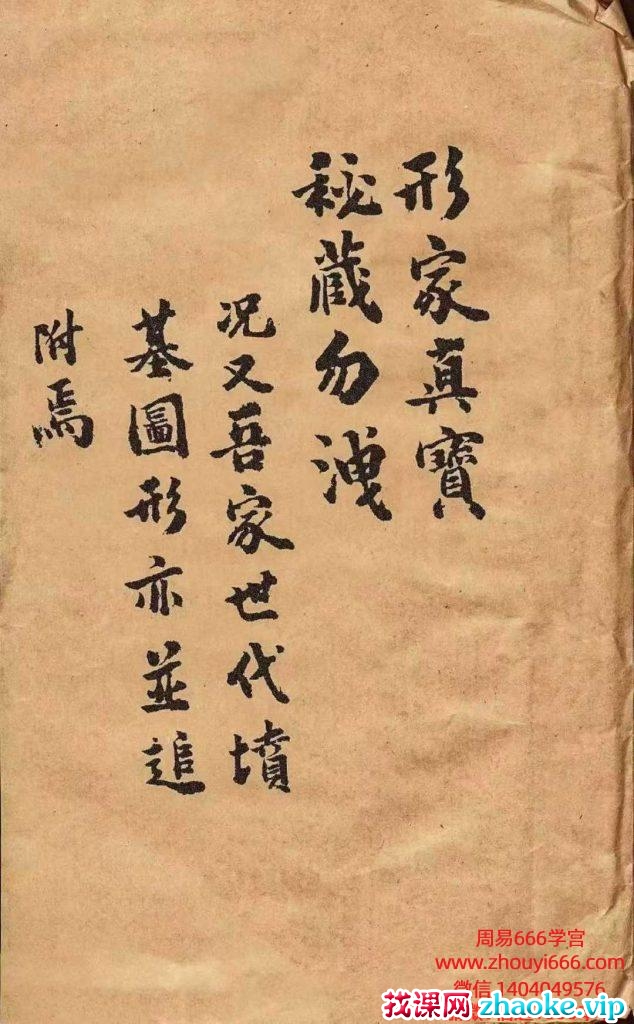 形家真寶
秘藏勿洩
况又吾家世代墳
墓圖形亦並追
附焉
周易666学宫
www.zhouyi666.com
微信 1404049576
找课网zhaoke.vip